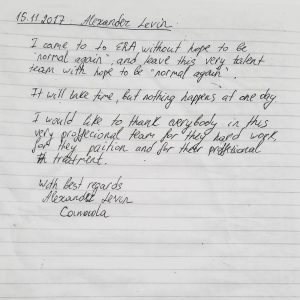 15.11.2017 - Alexander Levin.
I came to to ERA without hope to be
"normal again", and leave this very talent
team with hope to be "normal again".
It will take time, but nothing happens at one day
I would like to thank everybody in this
very proffecional team for they hard work,
for they paction and for their proffecional
treatment.
With best regards
Alexander Levin